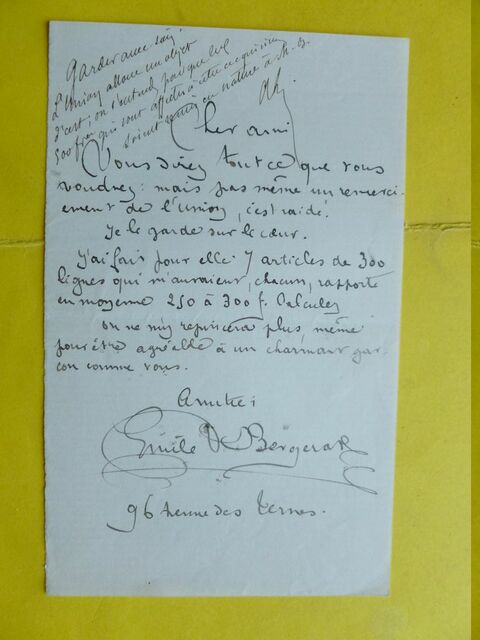 Garder avec soin
L'Union alloue un objet
d'art, on s'entend pour que les
500 frs qui sont affectés à cette acquisition
soient remis en nature à M. B.
Cher ami
Vous direz tout ce que vous
voudrez : mais pas même un remerci-
ement de l'Union, c'est raide.
Je le garde sur le cœur.
J'ai fait pour elle 7 articles de 300
lignes qui m'auraient, chacun, rapporté
en moyenne 250 à 300 f. Calculez
on ne m'y repincera plus, même
pour être agréable à un charmant gar-
çon comme vous.
Amitiés
Emile Bergerat
96 avenue des Ternes.